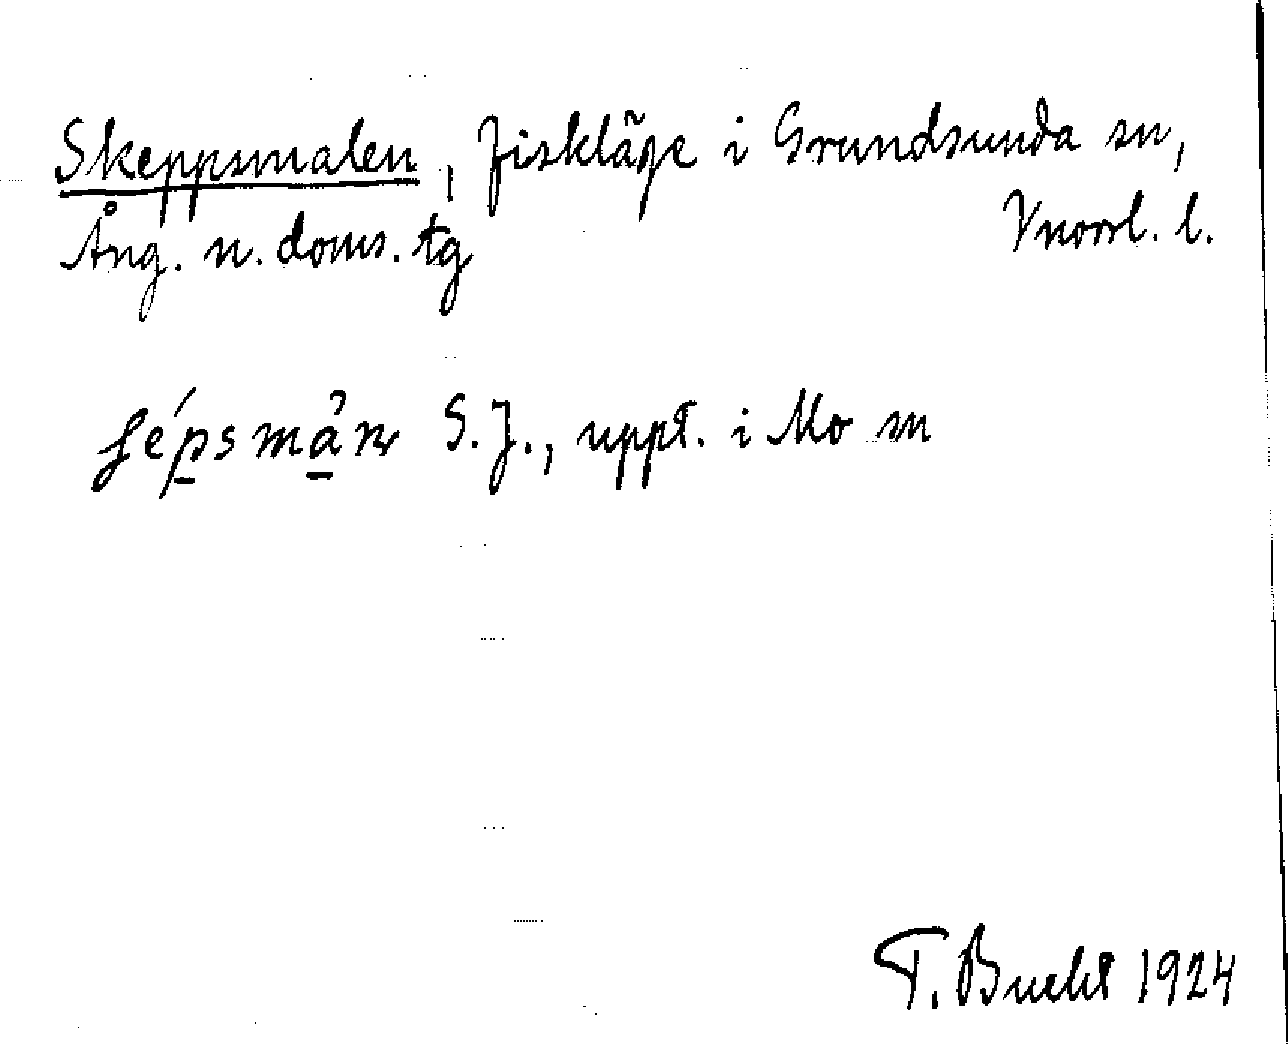 Skeppsmalen, fiskläge i Grundsunda sn,
Ång. n. doms. tg Vnorrl. l.
S. J., uppt. i Mo sn
T. Bucht 1924